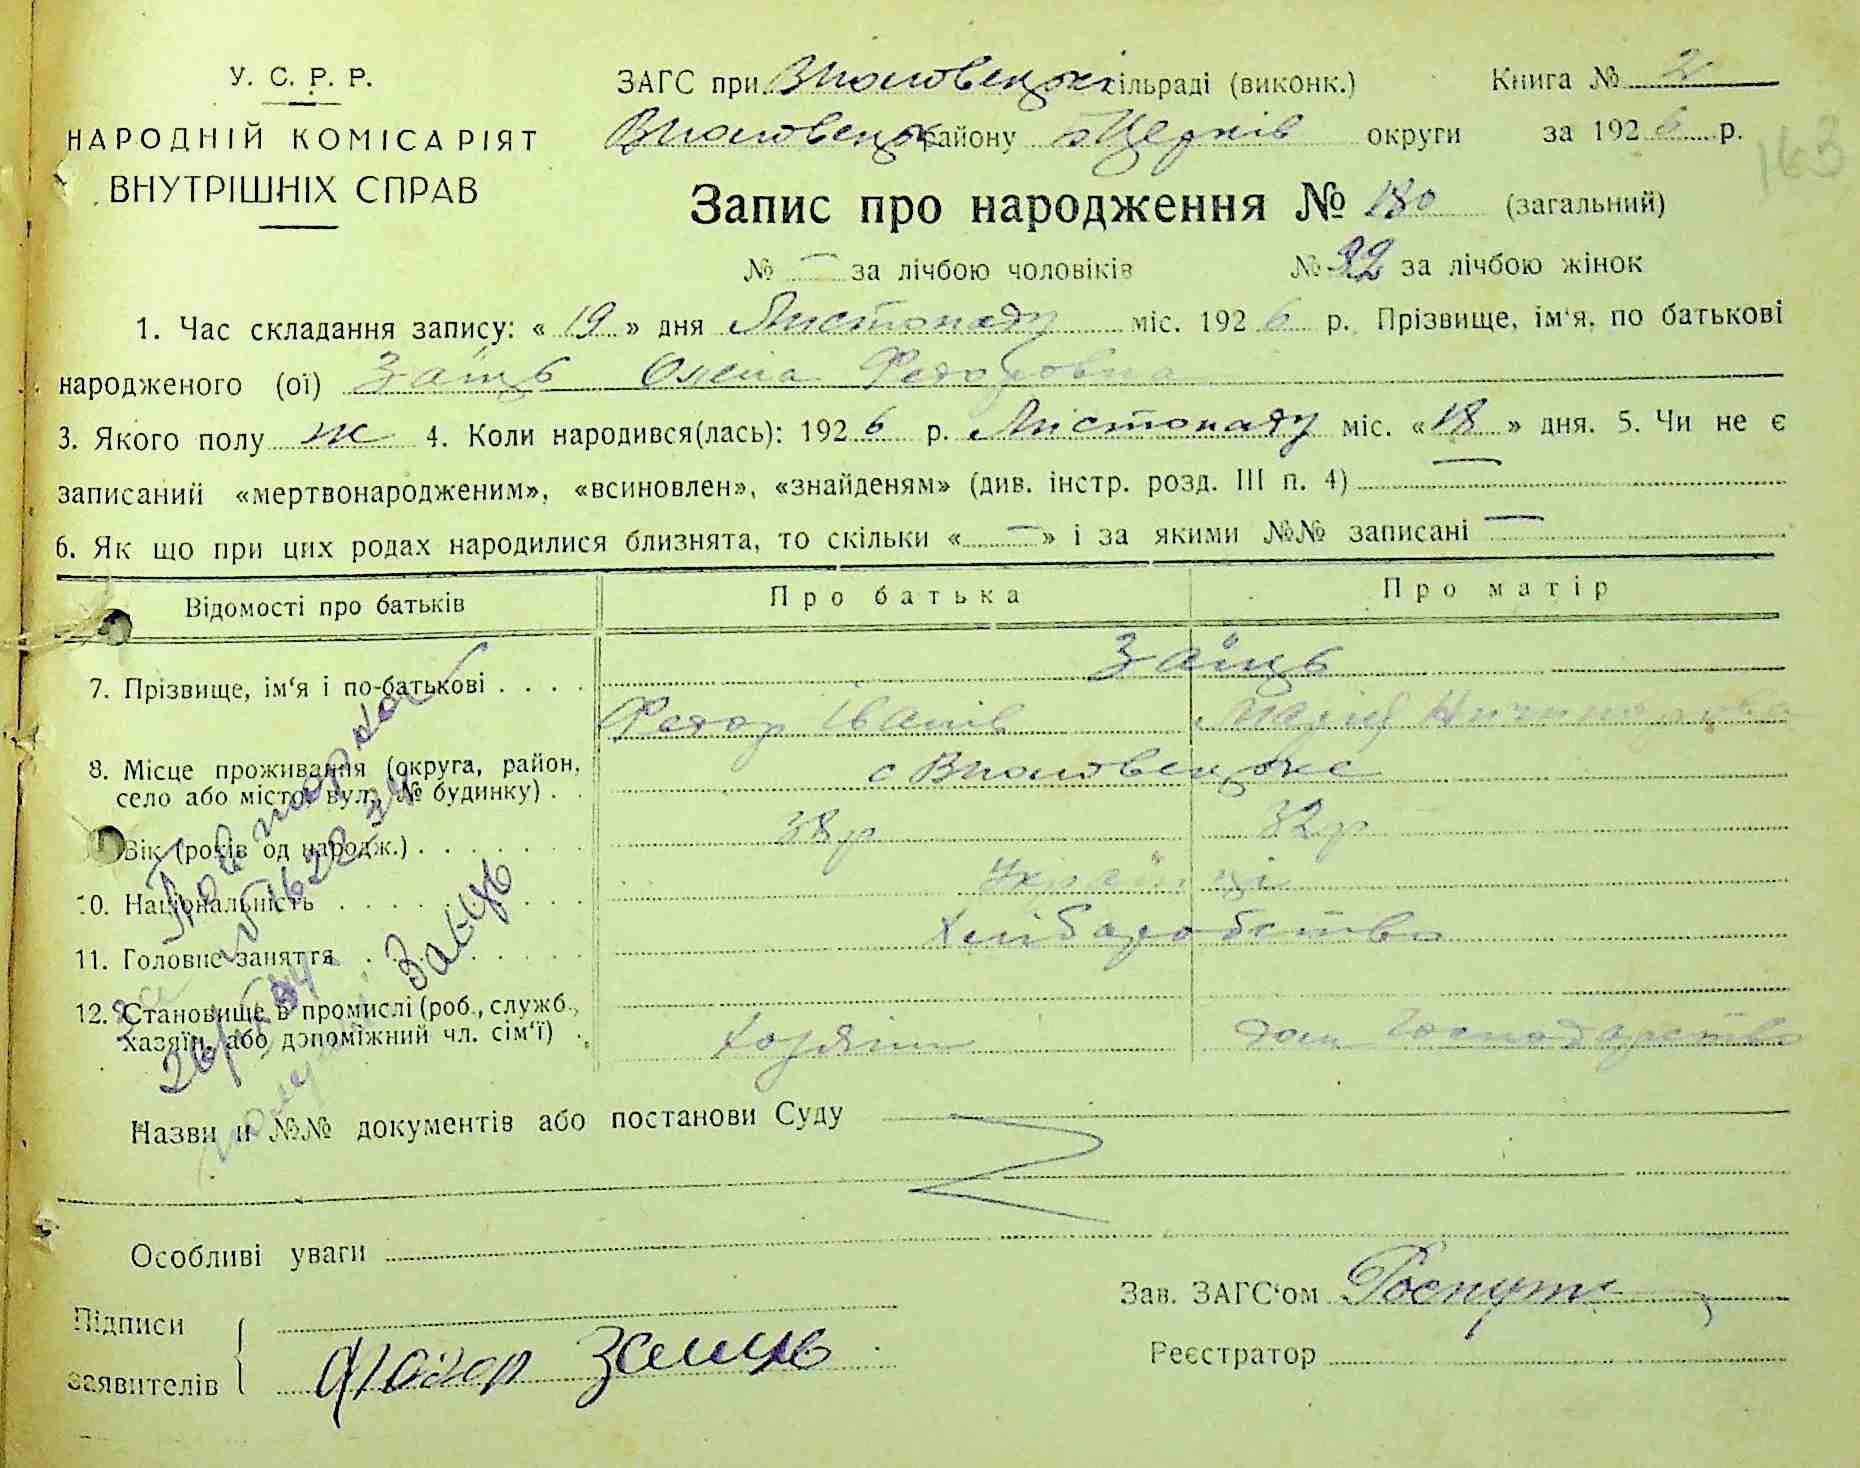 У. С. Р. Р.
НАРОДНІЙ КОМІСАРІЯТ
ВНУТРІШНІХ СПРАВ
ЗАГС при сільраді (виконк.) Книга № 2
району бЦерків округи за 1926 р.
163
Запис про народження № 180 (загальний)
№ — за лічбою чоловіків № 92 за лічбою жінок
1. Час складання запису: « 19 » дня Листопаду міс. 1926 р. Прізвище, ім'я, по батькові
народженого (ої) Заїць Олена Федоровна
3. Якого полу ж 4. Коли народився(лась): 1926 р. Листопаду міс. «18» дня. 5. Чи не є
записаний «мертвонародженим», «всиновлен», «знайденям» (див. інстр. розд. III п. 4) —
6. Як що при цих родах народилися близнята, то скільки « — » і за якими №№ записані —
Відомості про батьків Про батька Про матір
7. Прізвище, ім'я і по-батькові . . . . Заїць
Федор Іванів Марія
8. Місце проживання (округа, район,
село або місто, вул., № будинку) . . с
Вік (років од народж.) . . . . . . . 38р 32р
10. Національність . . . . . . . . . Українці
11. Головне заняття . . . . . . . . Хліборобство
12. Становище в промислі (роб., служб.,
хазяїн, або допоміжний чл. сім'ї) . Хозяїн дом господарство
Паспорт
Заєць
Назви и №№ документів або постанови Суду
Особливі уваги
Підписи
заявителів Заиць
Зав. ЗАГС'ом
Реєстратор